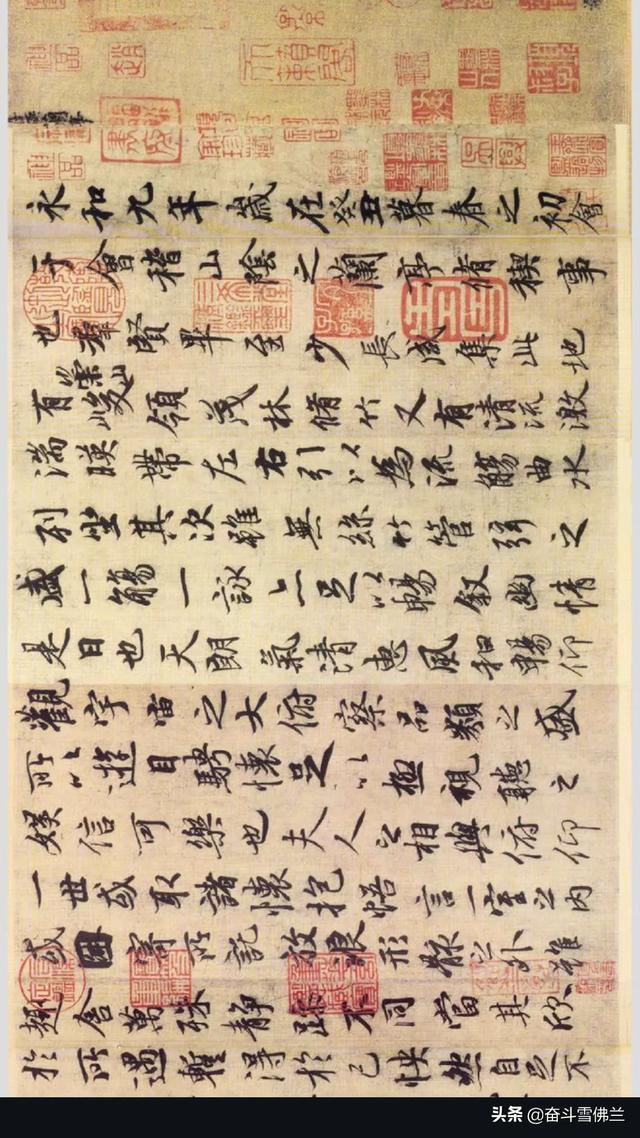 永和九年歲在癸丑暮春之初會
于會稽山陰之蘭亭脩稧事
也羣賢畢至少長咸集此地
有崇山峻領茂林脩竹又有清流激
湍暎帶左右引以為流觴曲水
列坐其次雖無絲竹管弦之
盛一觴一詠亦足以暢敘幽情
是日也天朗氣清惠風和暢仰
觀宇宙之大俯察品類之盛
所以遊目騁懷足以極視聽之
娛信可樂也夫人之相與俯仰
一世或取諸懷抱悟言一室之內
或因寄所託放浪形骸之外雖
趣舍萬殊靜躁不同當其欣
於所遇蹔得於己怏然自足不
头条 @奋斗雪佛兰